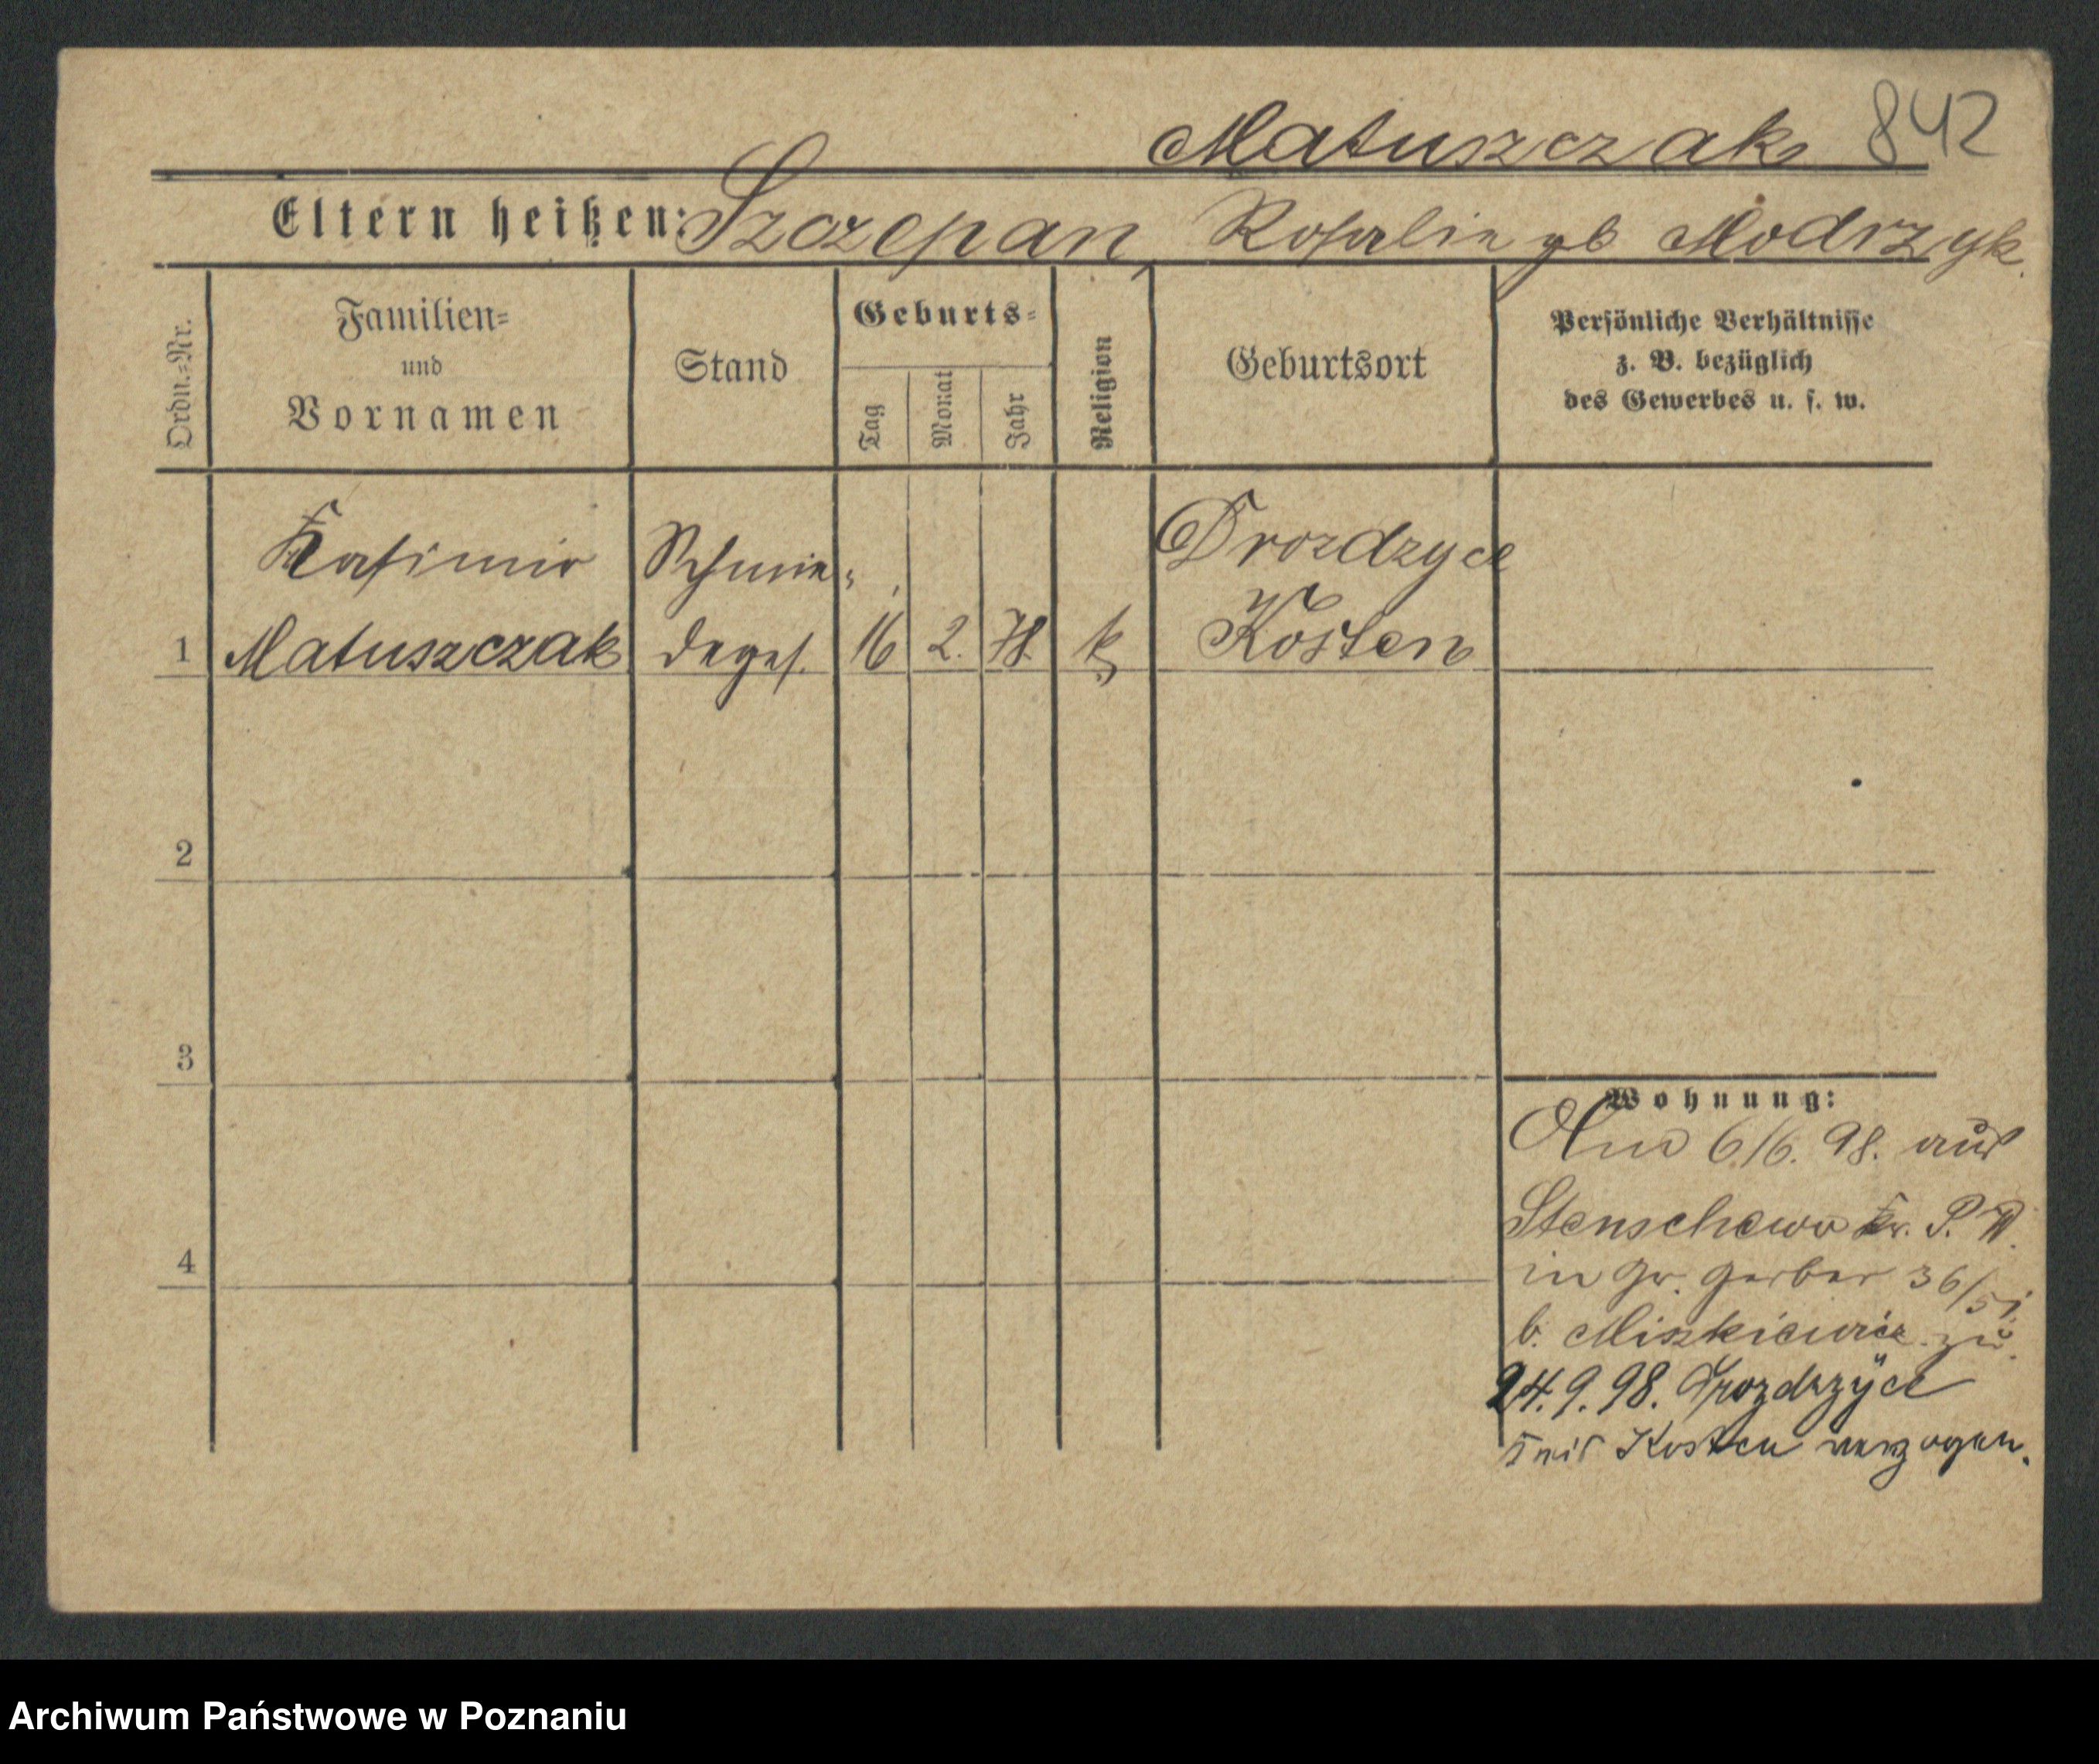 Matuszczak 842
Eltern heißen: Szczepan, Rosalie gb Modrzyk.
Ordn.=Nr.
Familien=
und
Vornamen
Stand
Geburts=
Tag
Monat
Jahr
Religion
Geburtsort
Persönliche Verhältnisse
z. B. bezüglich
des Gewerbes u. s. w.
Kasimir
Matuszczak
Schmie=
deges.
1
16
2.
78.
k
Drozdzyce
Kosten
2
3
4
Wohnung:
Am 6/6. 98. aus
Stenschewo Kr. P. W.
in Gr. Gerber 36/51.
b. Miszkiewicz zu.
24.9.98. Drozdzyce
Kosten verzogen.
Archiwum Państwowe w Poznaniu